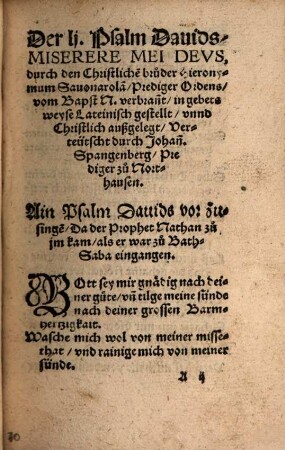 Der lj. Psalm Dauids
MISERERE MEI DEVS,
durch den Christlichē brůder Hierony-
mum Sauonarolã/ Prediger Ordens/
vom Bapst N. verbrañt/ in gebets
weyse Lateinisch gestellt/ vnnd
Christlich außgelegt/ Ver-
teütscht durch Johañ.
Spangenberg/ Pre
diger zů Nort-
hausen.
Ain Psalm Dauids vor zů-
singē/ Da der Prophet Nathan zů
jm kam/ als er war zů Bath-
Saba eingangen.
GOtt sey mir gnådig nach dei-
ner gůte/ vñ tilge meine sünde
nach deiner grossen Barm-
hertzigkait.
Wasche mich wol von meiner misse-
that/ vnd rainige mich von meiner
sünde.
A ij